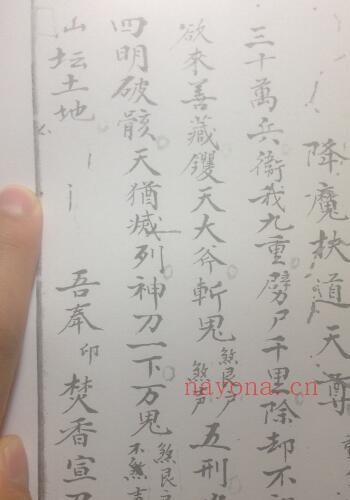 降魔扶道天尊
三十萬兵衛我九重劈尸千里除却不
欲來善藏钁天大斧斬鬼 煞艮尸 煞尹 五刑
四明破骸天猶滅列神刀一下万鬼 煞艮 不煞
山坛土地 吾奉 印 焚香宣
nayona.cn